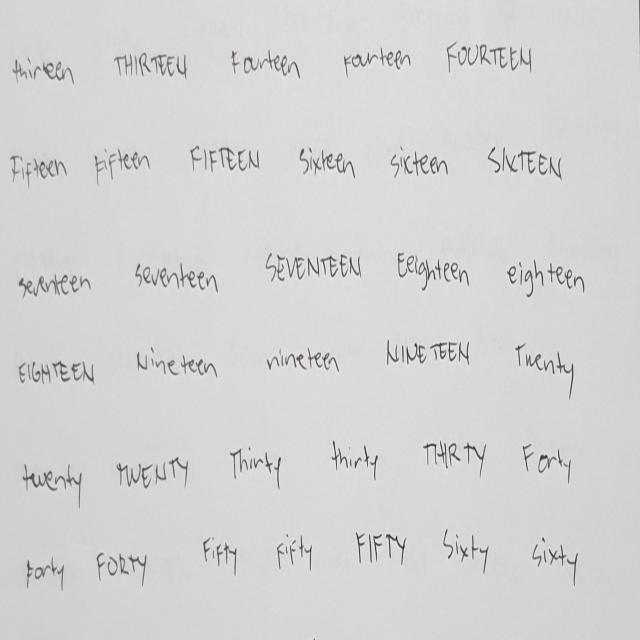 thirteen THIRTEEN Fourteen fourteen FOURTEEN
Fifteen fifteen FIFTEEN Sixteen sixteen SIXTEEN
seventeen seventeen SEVENTEEN Eeighteen eighteen
EIGHTEEN Nineteen nineteen NINETEEN Twenty
twenty TWENTY Thirty thirty THIRTY Forty
forty FORTY Fifty fifty FIFTY Sixty sixty